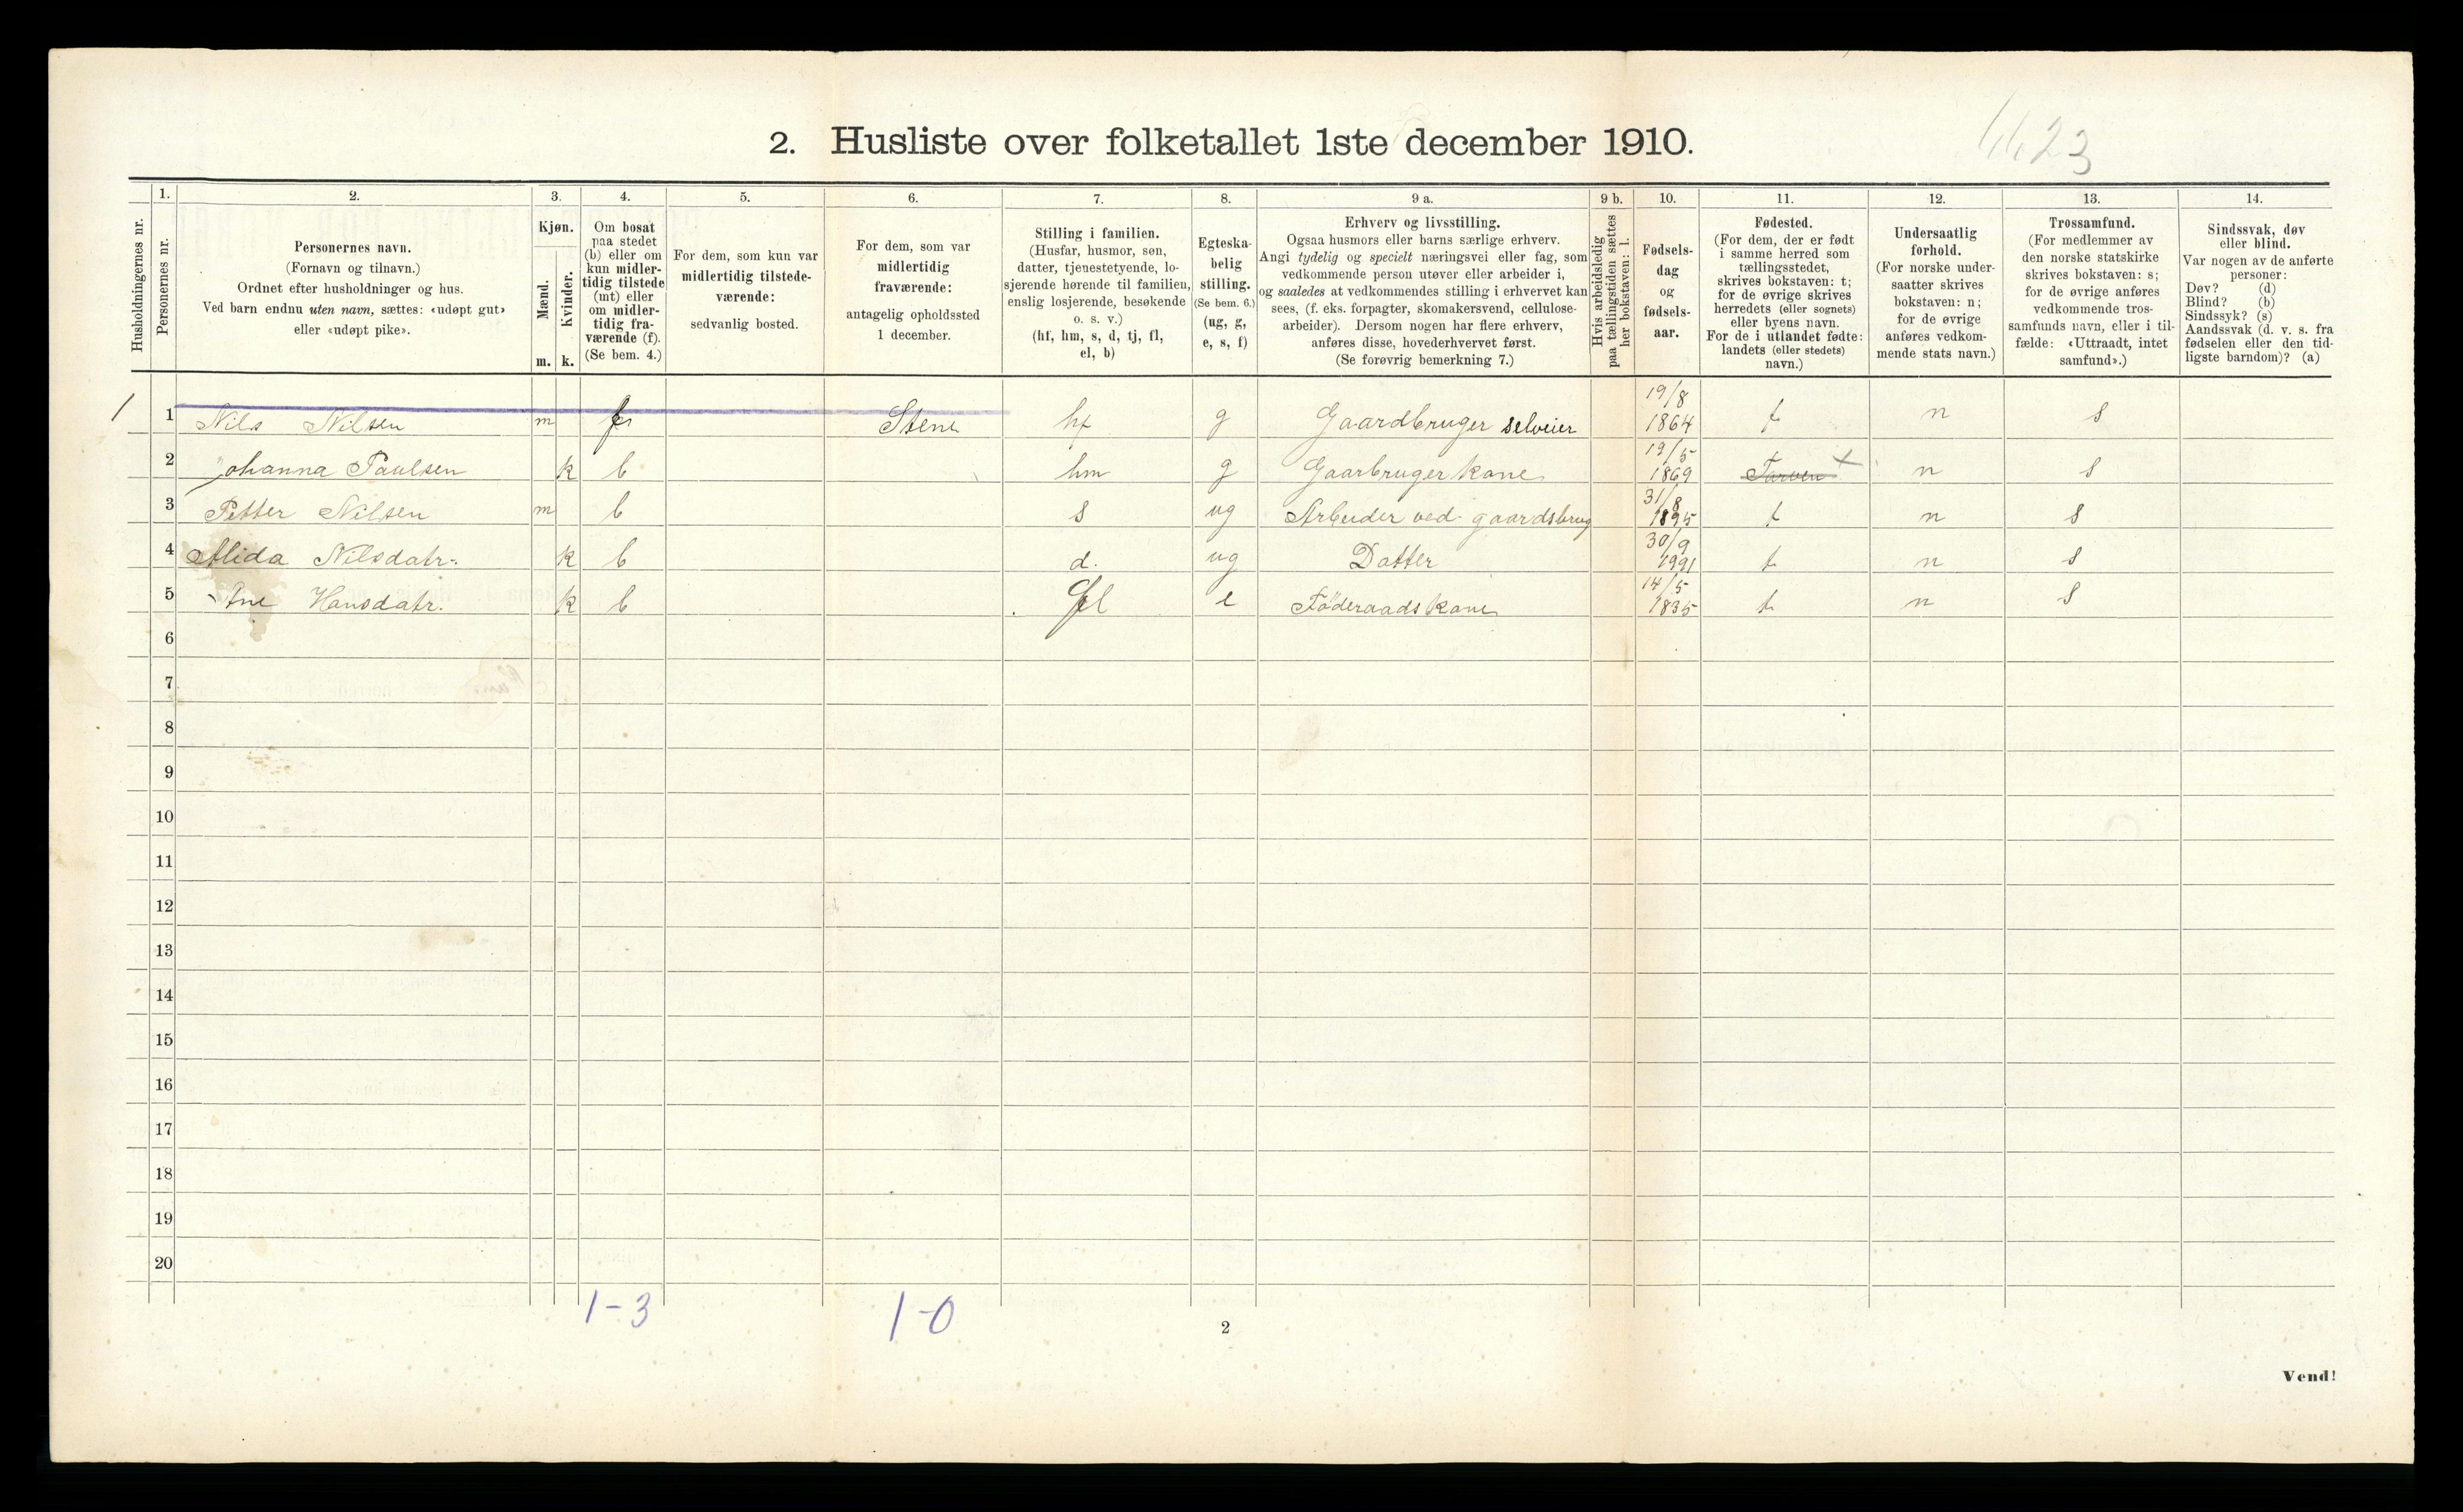 4423
2. Husliste over folketallet 1ste december 1910.
1. 2. 3. 4. 5. 6. 7. 8. 9 a. 9 b. 10. 11. 12. 13. 14.
Husholdningernes nr.
Personernes nr.
Personernes navn.
(Fornavn og tilnavn.)
Ordnet efter husholdninger og hus.
Ved barn endnu uten navn, sættes: «udøpt gut»
eller «udøpt pike».
Kjøn.
Mænd.
Kvinder.
m. k.
Om bosat
paa stedet
(b) eller om
kun midler-
tidig tilstede
(mt) eller
om midler-
tidig fra-
værende (f).
(Se bem. 4.)
For dem, som kun var
midlertidig tilstede-
værende:
sedvanlig bosted.
For dem, som var
midlertidig
fraværende:
antagelig opholdssted
1 december.
Stilling i familien.
(Husfar, husmor, søn,
datter, tjenestetyende, lo-
sjerende hørende til familien,
enslig losjerende, besøkende
o. s. v.)
(hf, hm, s, d, tj, fl,
el, b)
Egteska-
belig
stilling.
(Se bem. 6.)
(ug, g,
e, s, f)
Erhverv og livsstilling.
Ogsaa husmors eller barns særlige erhverv.
Angi tydelig og specielt næringsvei eller fag, som
vedkommende person utøver eller arbeider i,
og saaledes at vedkommendes stilling i erhvervet kan
sees, (f. eks. forpagter, skomakersvend, cellulose-
arbeider). Dersom nogen har flere erhverv,
anføres disse, hovederhvervet først.
(Se forøvrig bemerkning 7.)
Hvis arbeidsledig
paa tællingstiden sættes
her bokstaven: l.
Fødsels-
dag
og
fødsels-
aar.
Fødested.
(For dem, der er født
i samme herred som
tællingsstedet,
skrives bokstaven: t;
for de øvrige skrives
herredets (eller sognets)
eller byens navn.
For de i utlandet fødte:
landets (eller stedets)
navn.)
Undersaatlig
forhold.
(For norske under-
saatter skrives
bokstaven: n;
for de øvrige
anføres vedkom-
mende stats navn.)
Trossamfund.
(For medlemmer av
den norske statskirke
skrives bokstaven: s;
for de øvrige anføres
vedkommende tros-
samfunds navn, eller i til-
fælde: «Uttraadt, intet
samfund».)
Sindssvak, døv
eller blind.
Var nogen av de anførte
personer:
Døv? (d)
Blind? (b)
Sindssyk? (s)
Aandssvak (d. v. s. fra
fødselen eller den tid-
ligste barndom)? (a)
1 1 Nils Nilsen m f Stene hf g Gaardbruger selveier 19/8 1864 t n s
2 Johanna Paulsen k b hm g Gaarbruger kone 19/5 1869 t n s
3 Petter Nilsen m b s ug Arbeider ved gaardsbrug 31/8 1895 t n s
4 Alida Nilsdatr. k b d. ug Datter 30/9 1991 t n s
5 Ane Hansdatr. k b fl e Föderaadskone 14/5 1835 t n s
6
7
8
9
10
11
12
13
14
15
16
17
18
19
20
1-3 1-0
2
Vend!